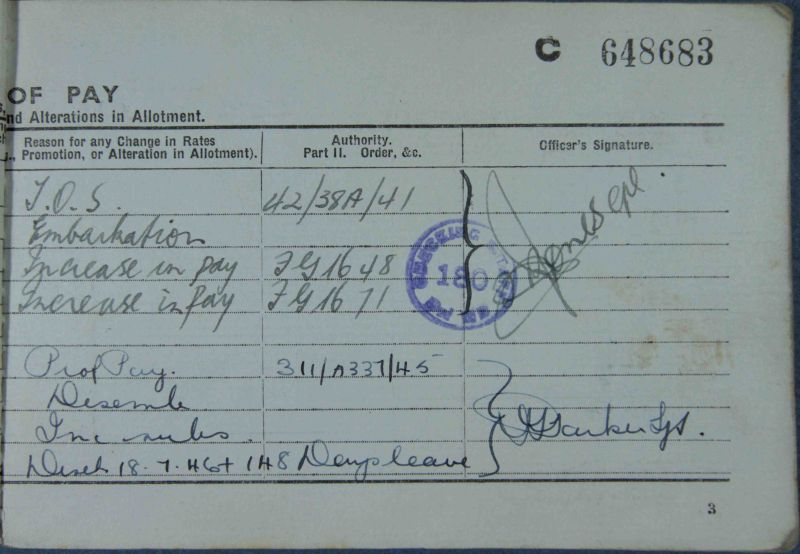 C 648683
OF PAY
nd Alterations in Allotment.
Reason for any Change in Rates
, Promotion, or Alteration in Allotment).
Authority.
Part II. Order, &c.
Officer's Signature.
T.O.S. 42/38A/41
Embarkation
Increase in pay FG1648
Increase in Pay FG1671
180
Prof Pay. 311/A337/45
Disemb
Inc subs.
Disch 18.7.46 + 148 Days leave
Barker Sgt.
3